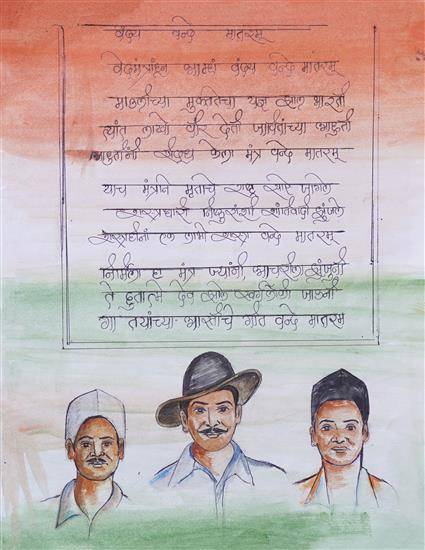 वंद्य वन्दे मातरम्
वेदमंत्रांहून आम्हां वंद्य वन्दे मातरम्
माऊलीच्या मुक्ततेचा यज्ञ झाला भारती
त्यांत लाखो वीर देती जीवितांच्या आहुती
आहुतींनी सिद्ध केला मंत्र वन्दे मातरम्
याच मंत्राने मृतांचे राष्ट्र सारे जागले
शस्त्रधारी निष्ठुरांशी शांतिवादी झुंजले
शस्त्रहीनां एक लाभो शस्त्र वन्दे मातरम्
निर्मिला हा मंत्र ज्यांनी आचरीला झुंजूनी
ते हुतात्मे देव झाले स्वर्गलोकी जाऊनी
गा तयांच्या आरतीचे गीत वन्दे मातरम्